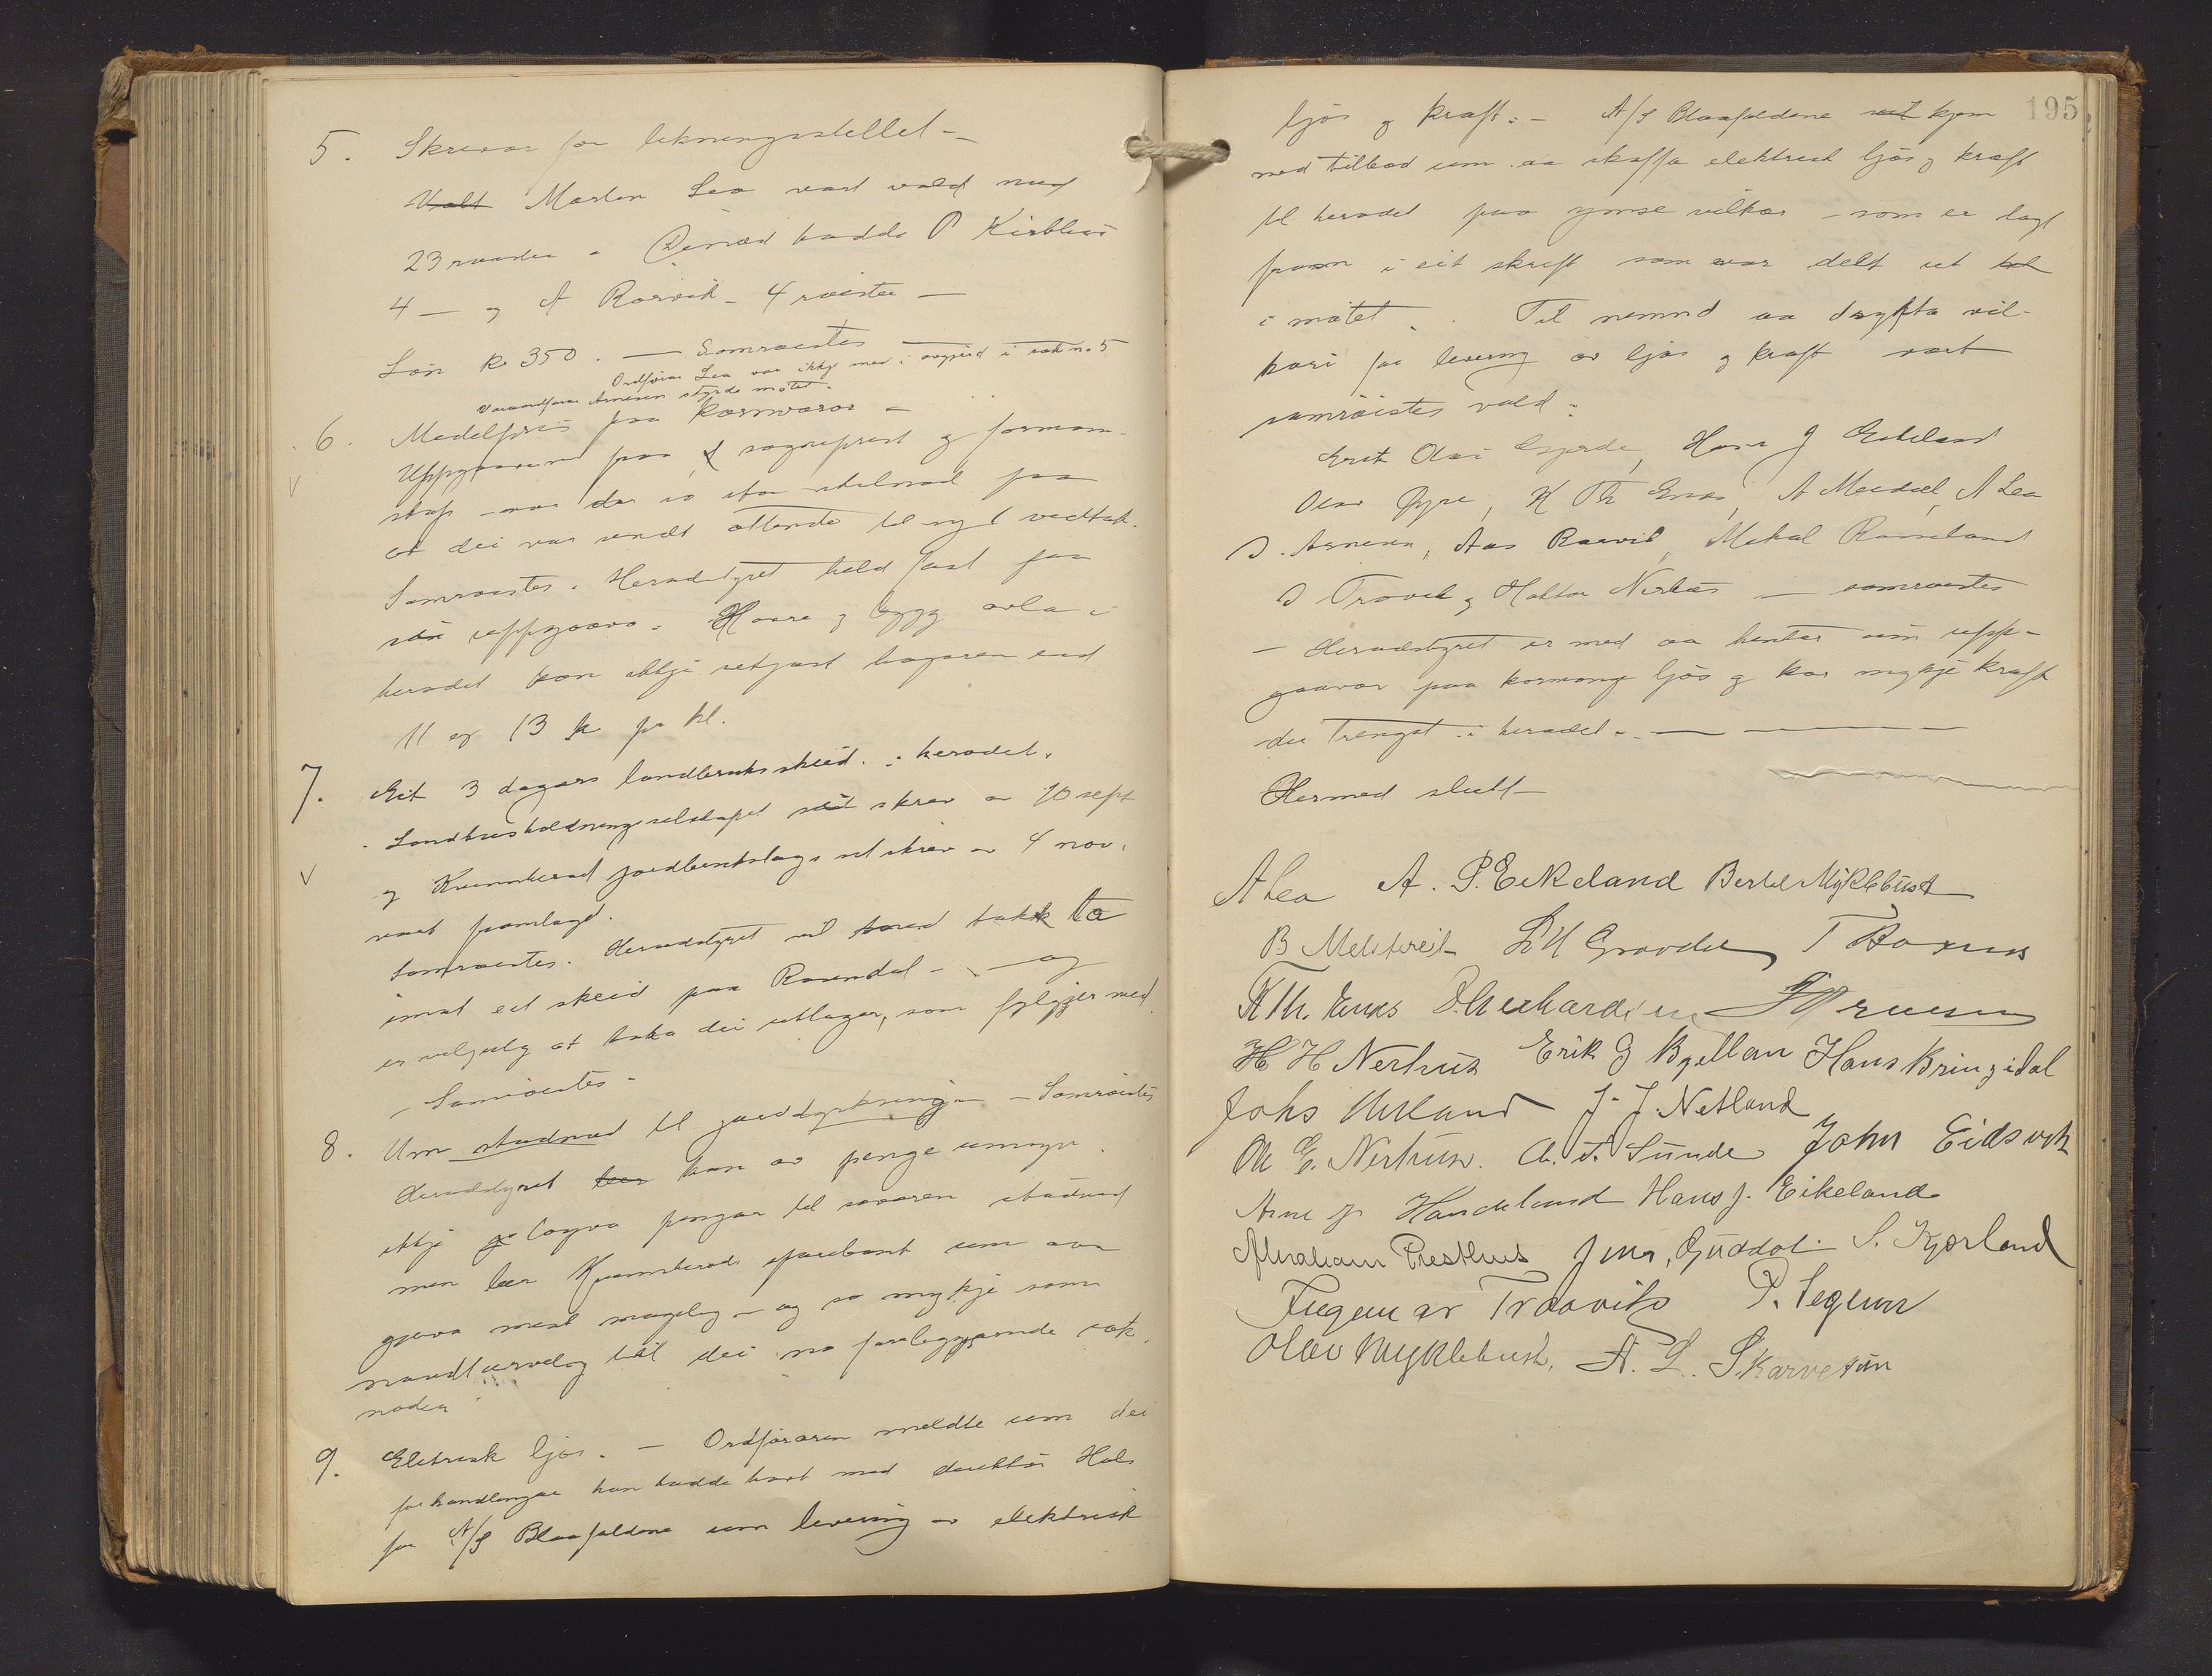 5. Skrivar for likningsstellet –
Valt Marten Lea vart vald med
23 røyster. Dinæst hadde P Kirkhus
4 – og A Rørvik – 4 røister –
Løn kr 350. — Samrøistes
Ordførar Lea var ikkje med i avgjerd i sak no 5
Varaordførar Arnesen styrde møtet.
6. Medelpris paa kornvaror –
Uppgaavene fraa sogneprest og formann-
skap – var der so stor skilnad paa
at dei var sendt attende til nytt vedtak.
Samrøistes. Heradstyret held fast paa
sin uppgaava. Havre og bygg avla i
heradet kan ikkje setjast høgare end
11 og 13 kr pr hl.
7. Eit 3 dagars landbruksskeid i heradet.
Landhusholdningsselskapet sit skriv av 10 sept
og Kvinnherad jordbrukslags sit skriv av 4 nov.
vart framlagd.
Samrøistes. Heradstyret vil takk ta
imot eit skeid paa Rosendal – og
er viljug at taka dei utlagar, som fylgjer med
– Samrøistes –
8. Um studnad til jorddyrkning – Samrøistes
Heradstyret kan av penge umsyn
ikkje løyva pengar til studnad
men ber Kvinnherads sparebank um aa
gjeva mest mogeleg – og so mykje som
naudturveleg til dei no foreleggjande søk
nader
9. Eletrisk ljos. – Ordføraren meldte um dei
forhandlingar han hadde havt med direktør Hals
for A/S Blaafaldene um levering av elektrisk
195
ljos og kraft. – A/S Blaafaldene vil kjem
med tilbod um aa skaffa elektrisk ljos og kraft
til heradet paa ymse vilkor – som er lagt
fram i eit skrift som var delt ut
i møtet. Til nemnd aa drøfta vil-
kori for levering av ljos og kraft vart
samrøistes vald:
Erik Olai Gjerde, Hans J Eikeland
Olav Øyre, K Th Enes, A Meidal, A Lea
D. Arnesen, Aas Rørvik, Mikal Røsseland
D Trovik og Haktor Nerhus — samrøistes
– Heradstyret er med aa henter inn upp-
gaavor paa kormange ljos og kor mykje kraft
dei trengst i heradet. — —
Hermed slutt
A Lea A. P. Eikeland Bertel Myklebust
B Mehtveit L H Grovden T Børnes
K Th. Enes O. Gerhardsen Arnesen
H H Nerhus Erik G Kjelland Hans Bringedal
Johs Utland J. J. Netland
Ole E. Nerhus. A. T. Sunde John Eidsvik
Arne J Handeland Hans J. Eikeland
Abraham Presthus Jens Guddal S. Kjørland
Ingemar Traavik P. Seglem
Olav Myklebust. A. L. Skarvetun